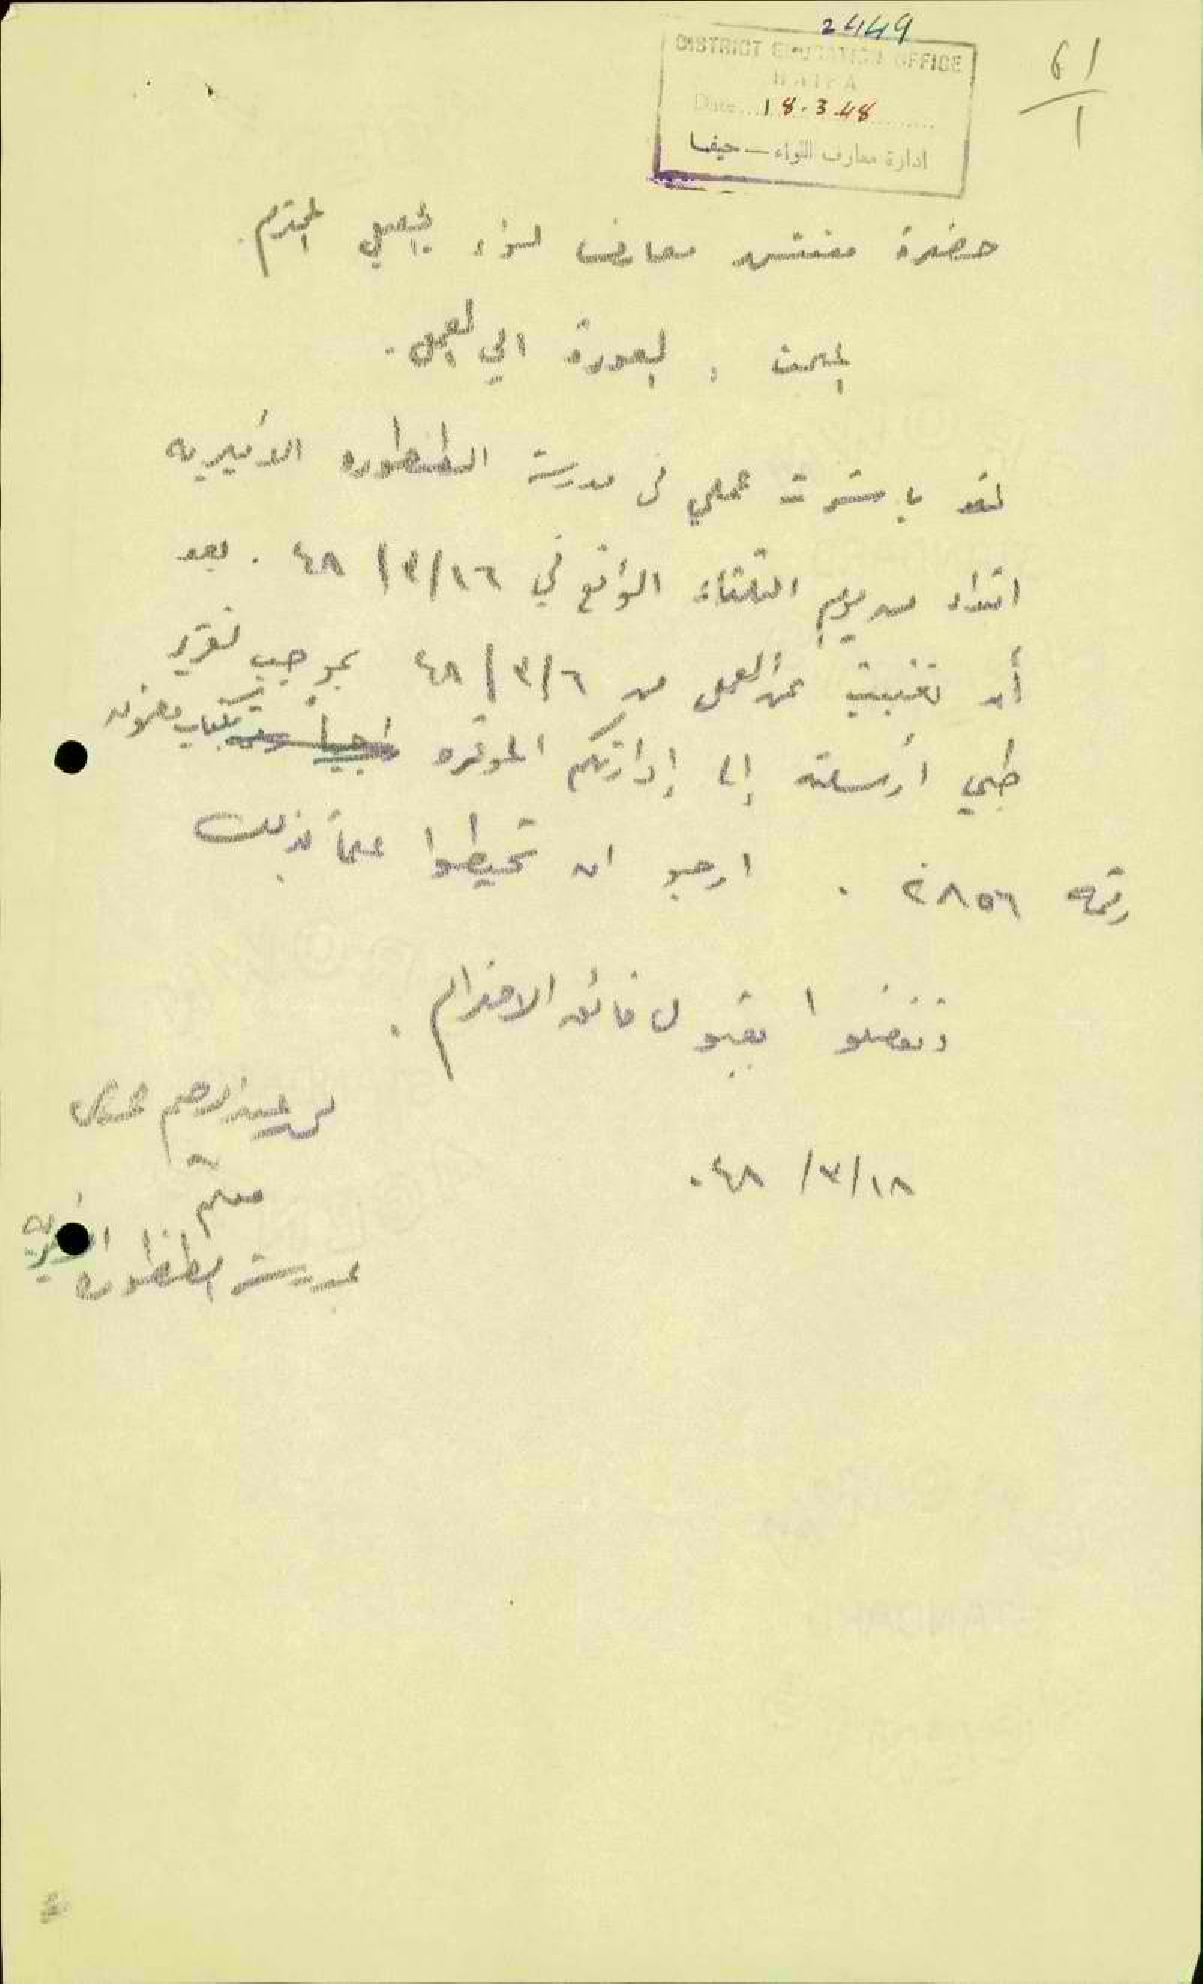 2449
61
1
DISTRICT EDUCATION OFFICE
HAIFA
Date... 18.3.48
ادارة معارف اللواء - حيفا
حضرة مفتش معارف لواء الجليل المحترم.
المبحث : العودة الى العمل.
لقد باشرت عملي في مدرسة الطنطوره الأميريه
ابتداء من يوم الثلثاء الواقع في ١٦/٣/٤٨ . بعد
أن تغيبت عن العمل من ٦/٣/٤٨ بموجب تقرير
طبي أرسلته إلى إدارتكم الموقره بكتاب مضمونه
رقمه ٢٨٥٦ . ارجو ان تحيطوا علماً بذلك
وتفضلوا بقبول فائق الاحترام .
عبد الرحيم
١٨/٣/٤٨.
معلم
بمدرسة الطنطوره الأميريه
STANDARD